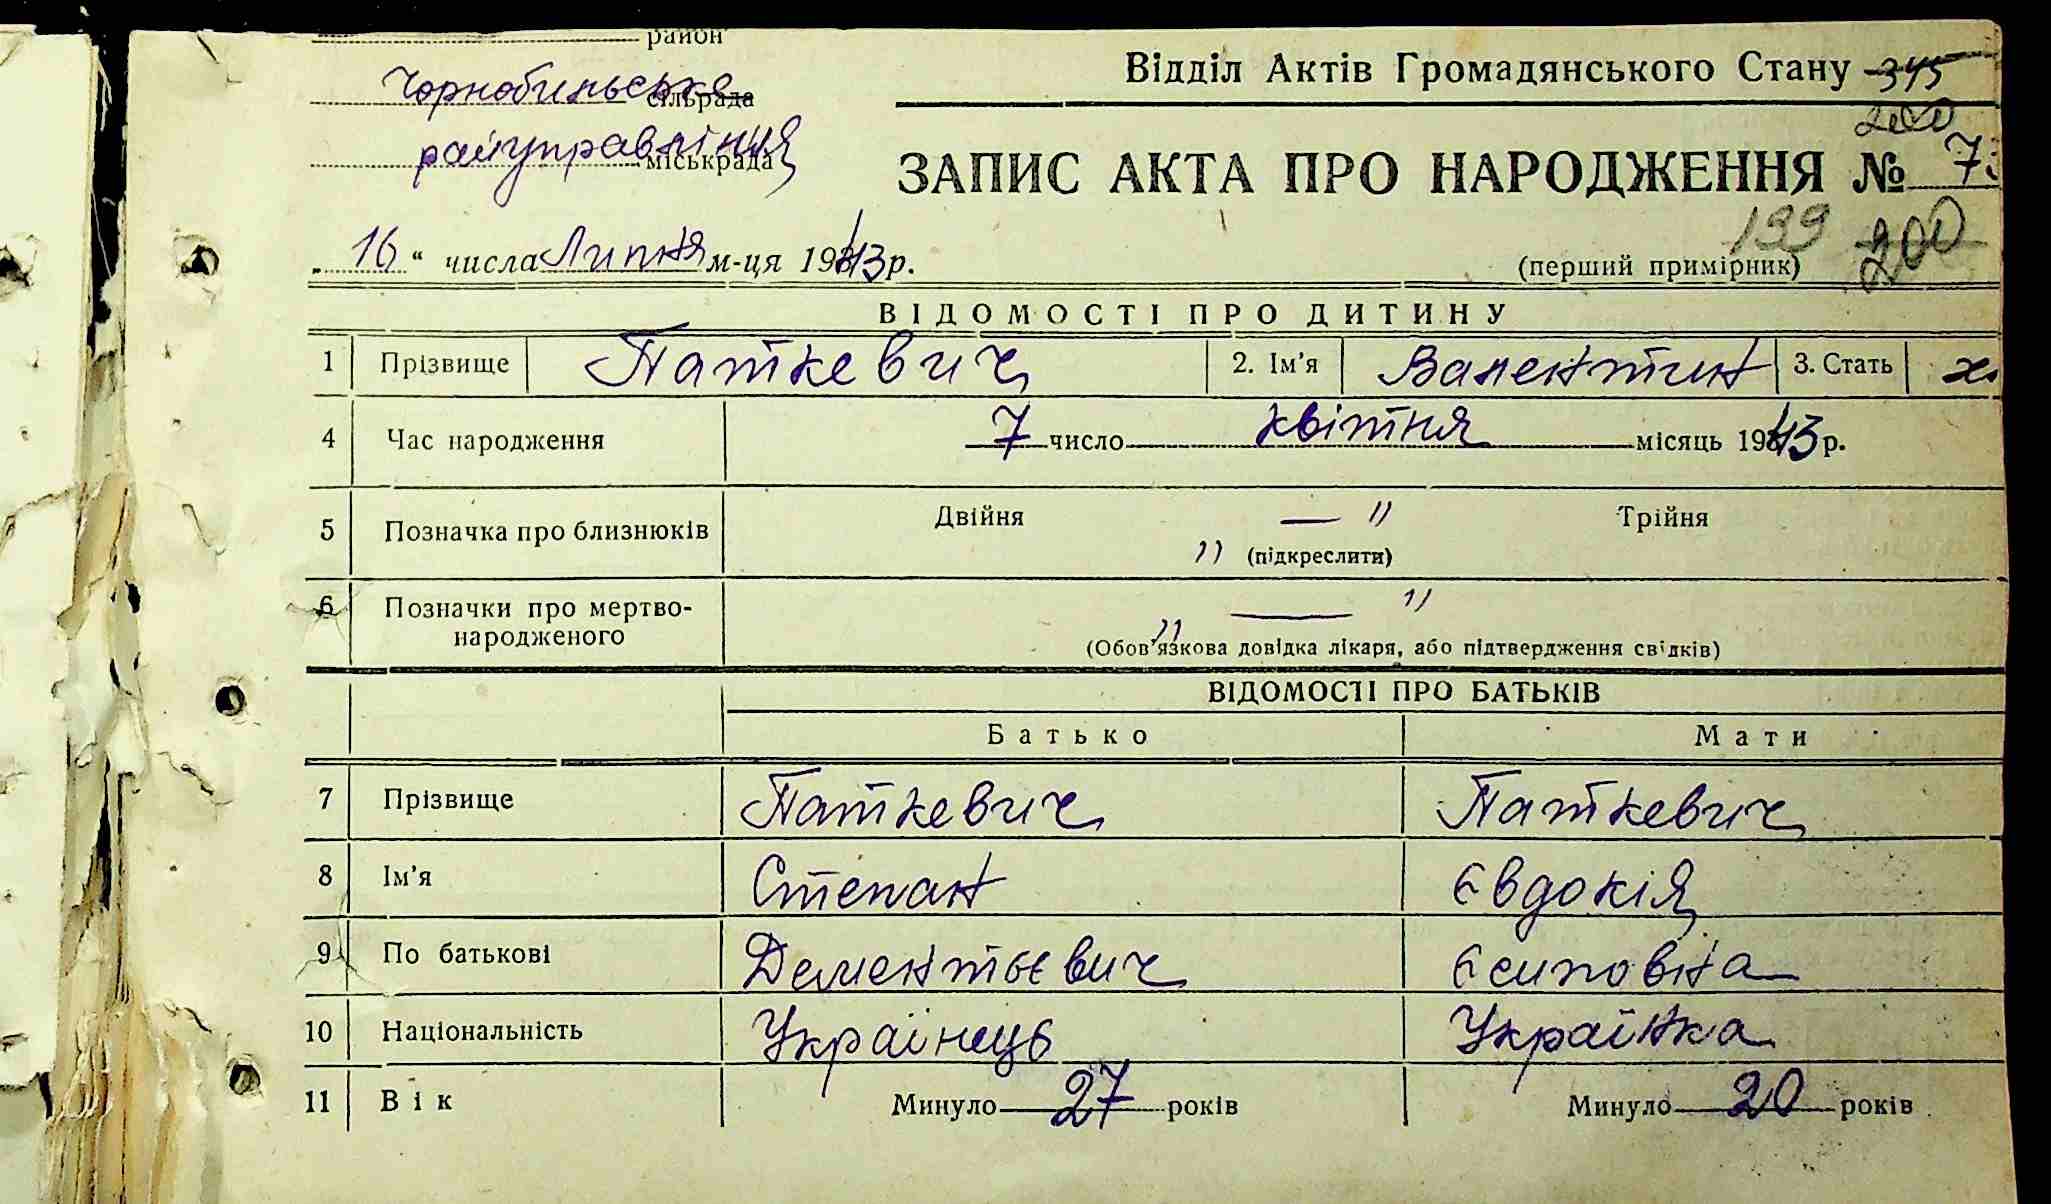 район
Чорнобильське сільрада
райуправління міськрада
Відділ Актів Громадянського Стану 345
200
ЗАПИС АКТА ПРО НАРОДЖЕННЯ № 73
„16“ числа Липня м-ця 1943 р.
199 200
(перший примірник)
ВІДОМОСТІ ПРО ДИТИНУ
1 Прізвище Паткевич 2. Ім'я Валентин 3. Стать
4 Час народження 7 число квітня місяць 1943 р.
5 Позначка про близнюків Двійня — " Трійня
" (підкреслити)
6 Позначки про мертво-
народженого — "
" (Обов'язкова довідка лікаря, або підтвердження свідків)
ВІДОМОСТІ ПРО БАТЬКІВ
Батько Мати
7 Прізвище Паткевич Паткевич
8 Ім'я Степан Євдокія
9 По батькові Дементьєвич Єсиповна
10 Національність Українець Українка
11 Вік Минуло 27 років Минуло 20 років